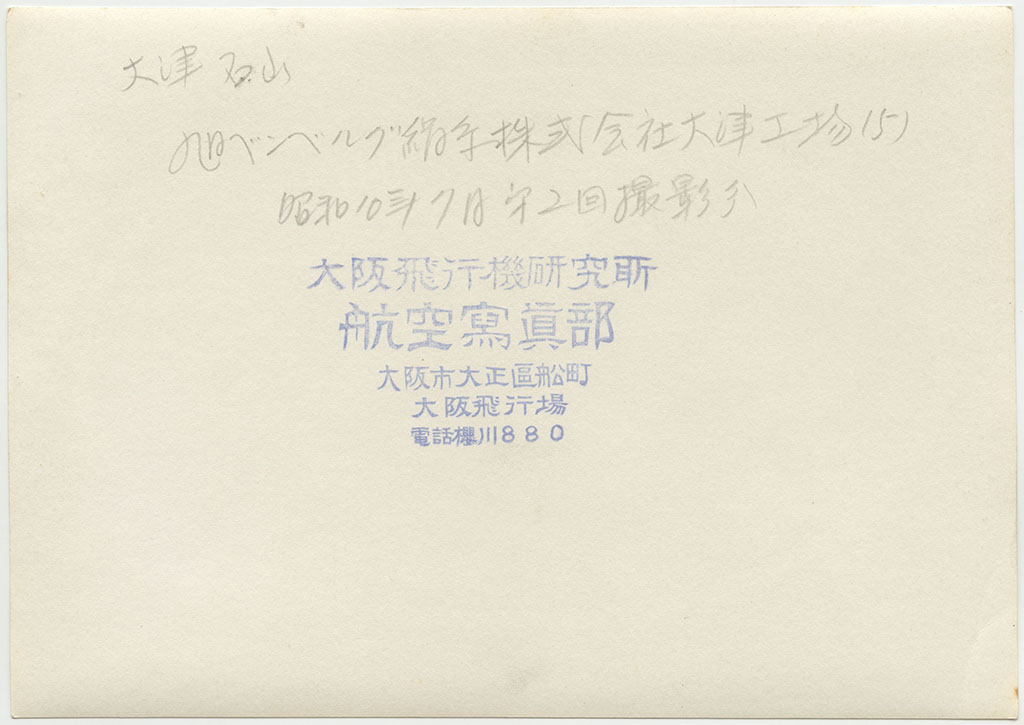 大津 石山
旭ベンベルグ絹糸株式会社大津工場(5)
昭和10年7月第2回撮影分
大阪飛行機研究所
航空寫眞部
大阪市大正區船町
大阪飛行場
電話櫻川880